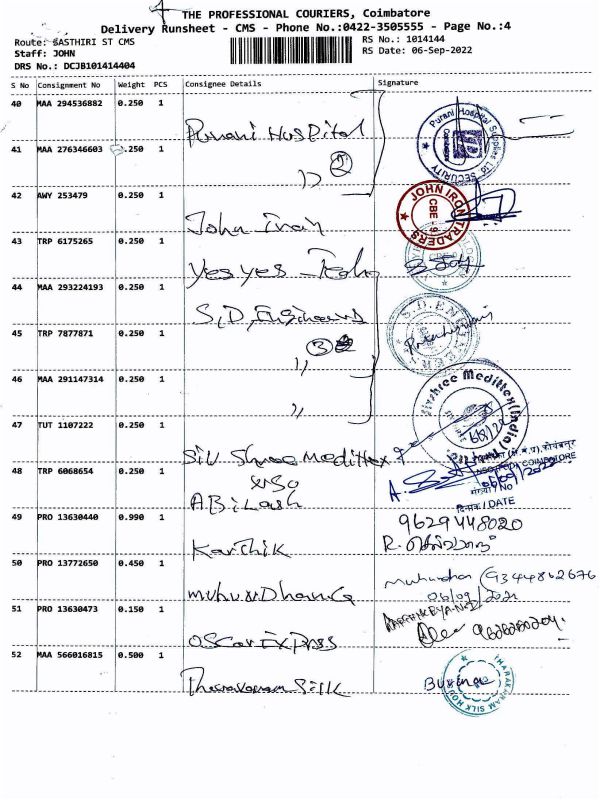 THE PROFESSIONAL COURIERS, Coimbatore
Delivery Runsheet - CMS - Phone No.:0422-3505555 - Page No.:4
Route: SASTHIRI ST CMS
RS No.: 1014144
Staff: JOHN
RS Date: 06-Sep-2022
DRS No.: DCJB101414404
S No Consignment No Weight PCS Consignee Details Signature
40 MAA 294536882 0.250 1
Purani Hospital
Purani Hospital Supplies Ltd SECURITY
41 MAA 276346603 .250 1
,, 2
42 AWY 253479 0.250 1
John Iron
JOHN IRON TRADERS
CBE - 9
43 TRP 6175265 0.250 1
Yesyes Tech
44 MAA 293224193 0.250 1
S.D. Engineers
S.D. ENGINEERS
45 TRP 7877871 0.250 1
,, 3
46 MAA 291147314 0.250 1
,,
47 TUT 1107222 0.250 1
Siv Shree Medittex
Sivshree Medittex (India)
48 TRP 6068654 0.250 1
NSO
ABiLash
COIMBATORE
06/09/2022
संख्या / NO
दिनांक / DATE
49 PRO 13630440 0.990 1
Karthik
9629448020
50 PRO 13772650 0.450 1
9344862676
06/09/2021
51 PRO 13630473 0.150 1
Oscar Express
52 MAA 566016815 0.500 1
Tharakaram Silk
THARAKARAM SILK HOUSE